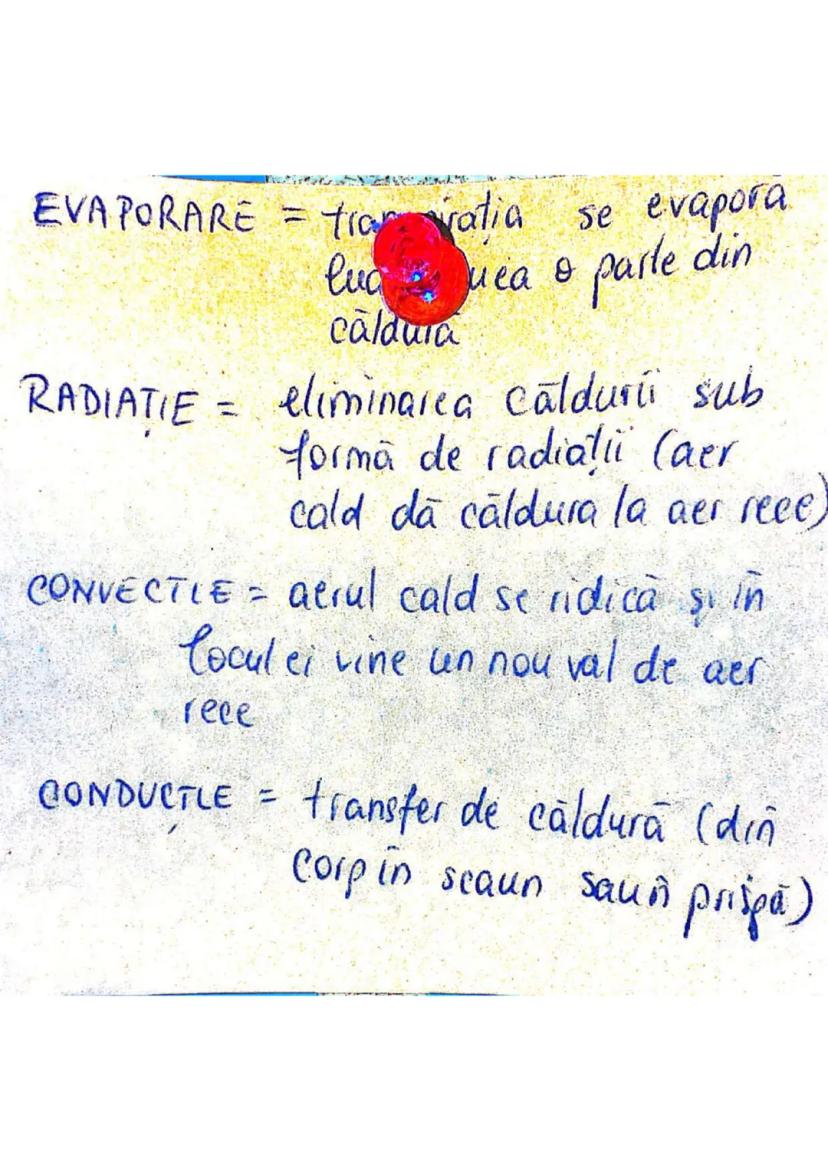 EVAPORARE = se evapora
o parte din
căldura
RADIAȚIE = eliminarea căldurii sub
formă de radiații (aer
cald dă căldura la aer rece)
CONVECTIE = aerul cald se ridică și în
locul ei vine un nou val de aer
rece
CONDUCȚIE = transfer de căldură (din
corp în scaun sau în prispă)